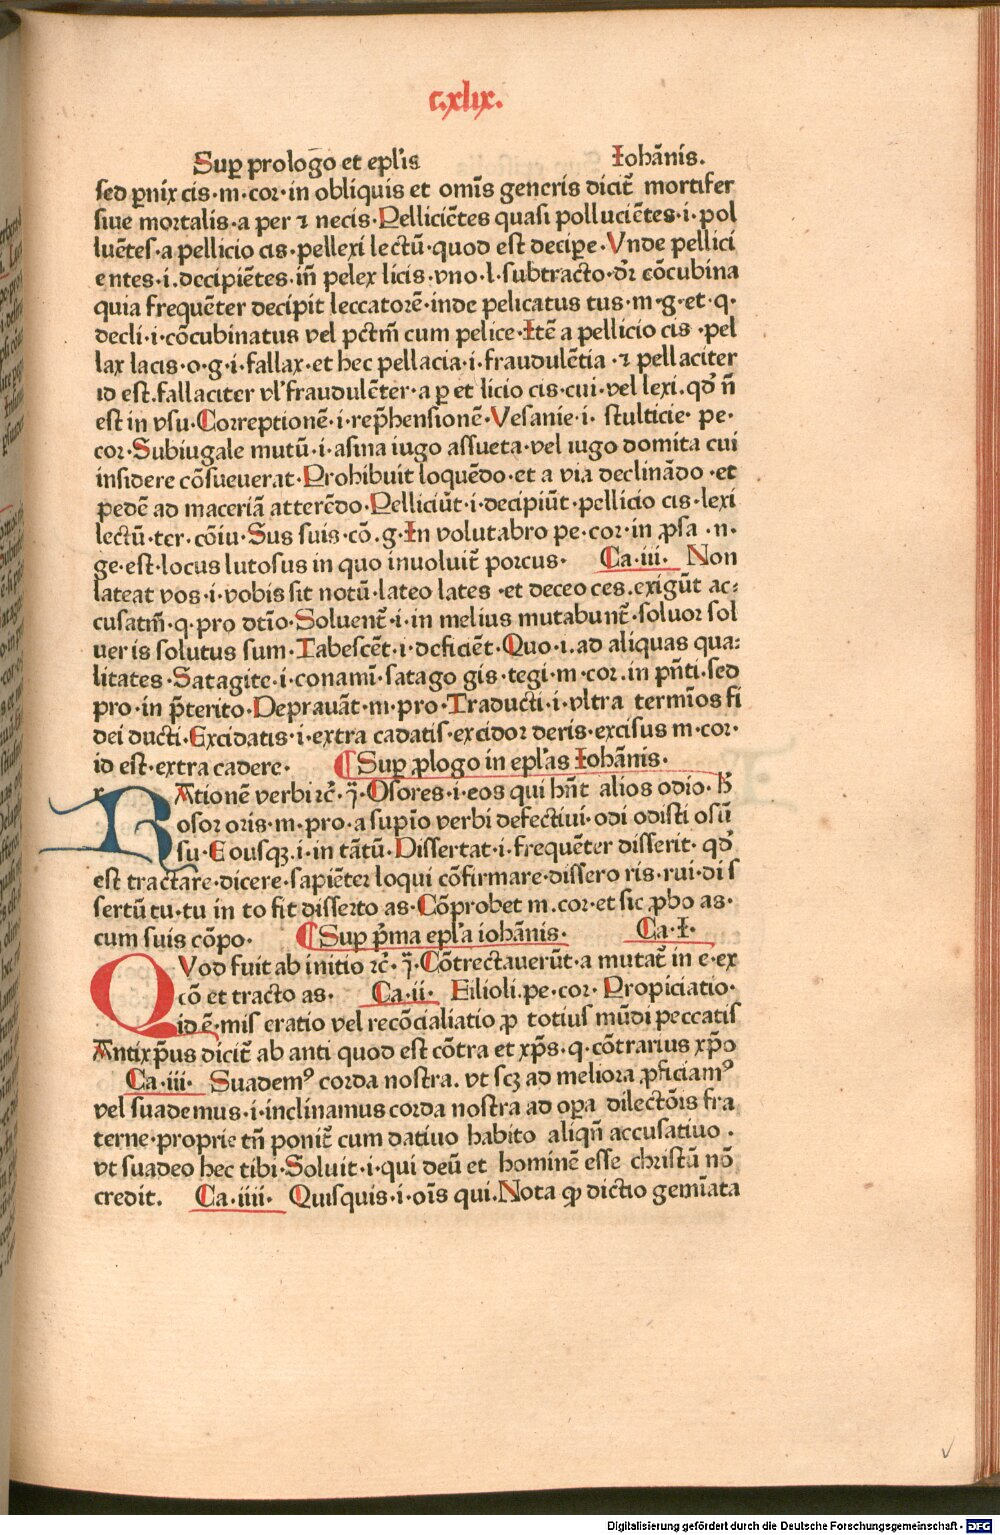 c.xlix.
Suꝑ prologo et epl'is Iohānis.
sed ꝑnix cis·m·cor·in obliquis et om̄s generis dicit̄ mortifer
siue mortalis·a per ⁊ necis·Pelliciētes quasi polluciētes·i·pol
luētes·a pellicio cis·pellexi lectū·quod est decipe·Vnde pellici
entes·i.decipiētes·in̄ pelex licis·vno·l·subtracto·dr̄ cōcubina
quia frequēter decipit leccatorē·inde pelicatus tus·m·g·et·q·
decli·i·cōcubinatus vel pctm̄ cum pelice·Itē a pellicio cis·pel
lax lacis·o·g·i·fallax·et hec pellacia·i·fraudulētia·⁊ pellaciter
id est.fallaciter vl' fraudulēter·a ꝑ et licio cis·cui·vel lexi.qd̄ n̄
est in vsu·Correptionē·i·rep̄hensionē·Vesanie·i·stulticie·pe·
cor·Subiugale mutū·i·asina iugo assueta·vel iugo domita cui
insidere cōsueuerat·Prohibuit loquēdo·et a via declinādo·et
pedē ad maceriā atterēdo·Pelliciūt·i·decipiūt·pellicio cis·lexi
lectū·ter·cōiu·Sus suis·cō.g·In volutabro pe·cor·in ꝓsa·n·
ge·est·locus lutosus in quo inuoluit̄ porcus· Ca·iii· Non
lateat vos·i·vobis sit notū·lateo lates·et deceo ces.exigūt ac:
cusatm̄·q·pro dtīo·Soluent̄·i·in melius mutabunt̄·soluor sol
ueris solutus sum·Tabescēt·i·deficiēt·Quo·i.ad aliquas qua:
litates·Satagite·i·conami·satago gis·tegi·m·cor.in pn̄ti·sed
pro·in p̄terito·Deprauāt·m·pro·Traducti·i·vltra term̄ios fi
dei ducti·Excidatis·i·extra cadatis·excidor deris·excisus m·cor·
id est·extra cadere· ¶ Suꝑ ꝓlogo in epl'as Iohānis·
RAtionē verbi ⁊c̄·Osores·i·eos qui hn̄t alios odio·h̄
osor oris·m·pro·a supīo verbi defectiui·odi odisti osū
su·Eousqꝫ·i·in tātū·Dissertat·i·frequēter disserit·qd̄
est tractare·dicere·sapiēter loqui cōfirmare·dissero ris·rui·dis
sertū tu·tu in to fit disserto as·Cōprobet m.cor·et sic ꝓbo as·
cum suis cōpo· ¶ Suꝑ p̄ma epl'a iohānis· Ca·I·
QVod fuit ab initio ⁊c̄·Cōtrectauerūt·a mutat̄ in e·ex
cō et tracto as· Ca·ii· Filioli.pe·cor·Propiciatio·
id ē·miseratio vel recōcialiatio ꝓ totius mūdi peccatis
Antixp̄us dicit̄ ab anti quod est cōtra et xp̄s·q·cōtrarius xp̄o
Ca·iii· Suademꝰ corda nostra.vt scꝫ ad meliora ꝓficiamꝰ
vel suademus·i·inclinamus corda nostra ad oꝑa dilectōis fra
terne·proprie tn̄ ponit̄ cum datiuo habito aliqn̄ accusatiuo·
vt suadeo hec tibi·Soluit·i·qui deū et hominē esse christū nō
credit. Ca·iiii· Quisquis·i·oīs qui.Nota ꝙ dictio gemīata
Digitalisierung gefördert durch die Deutsche Forschungsgemeinschaft · DFG